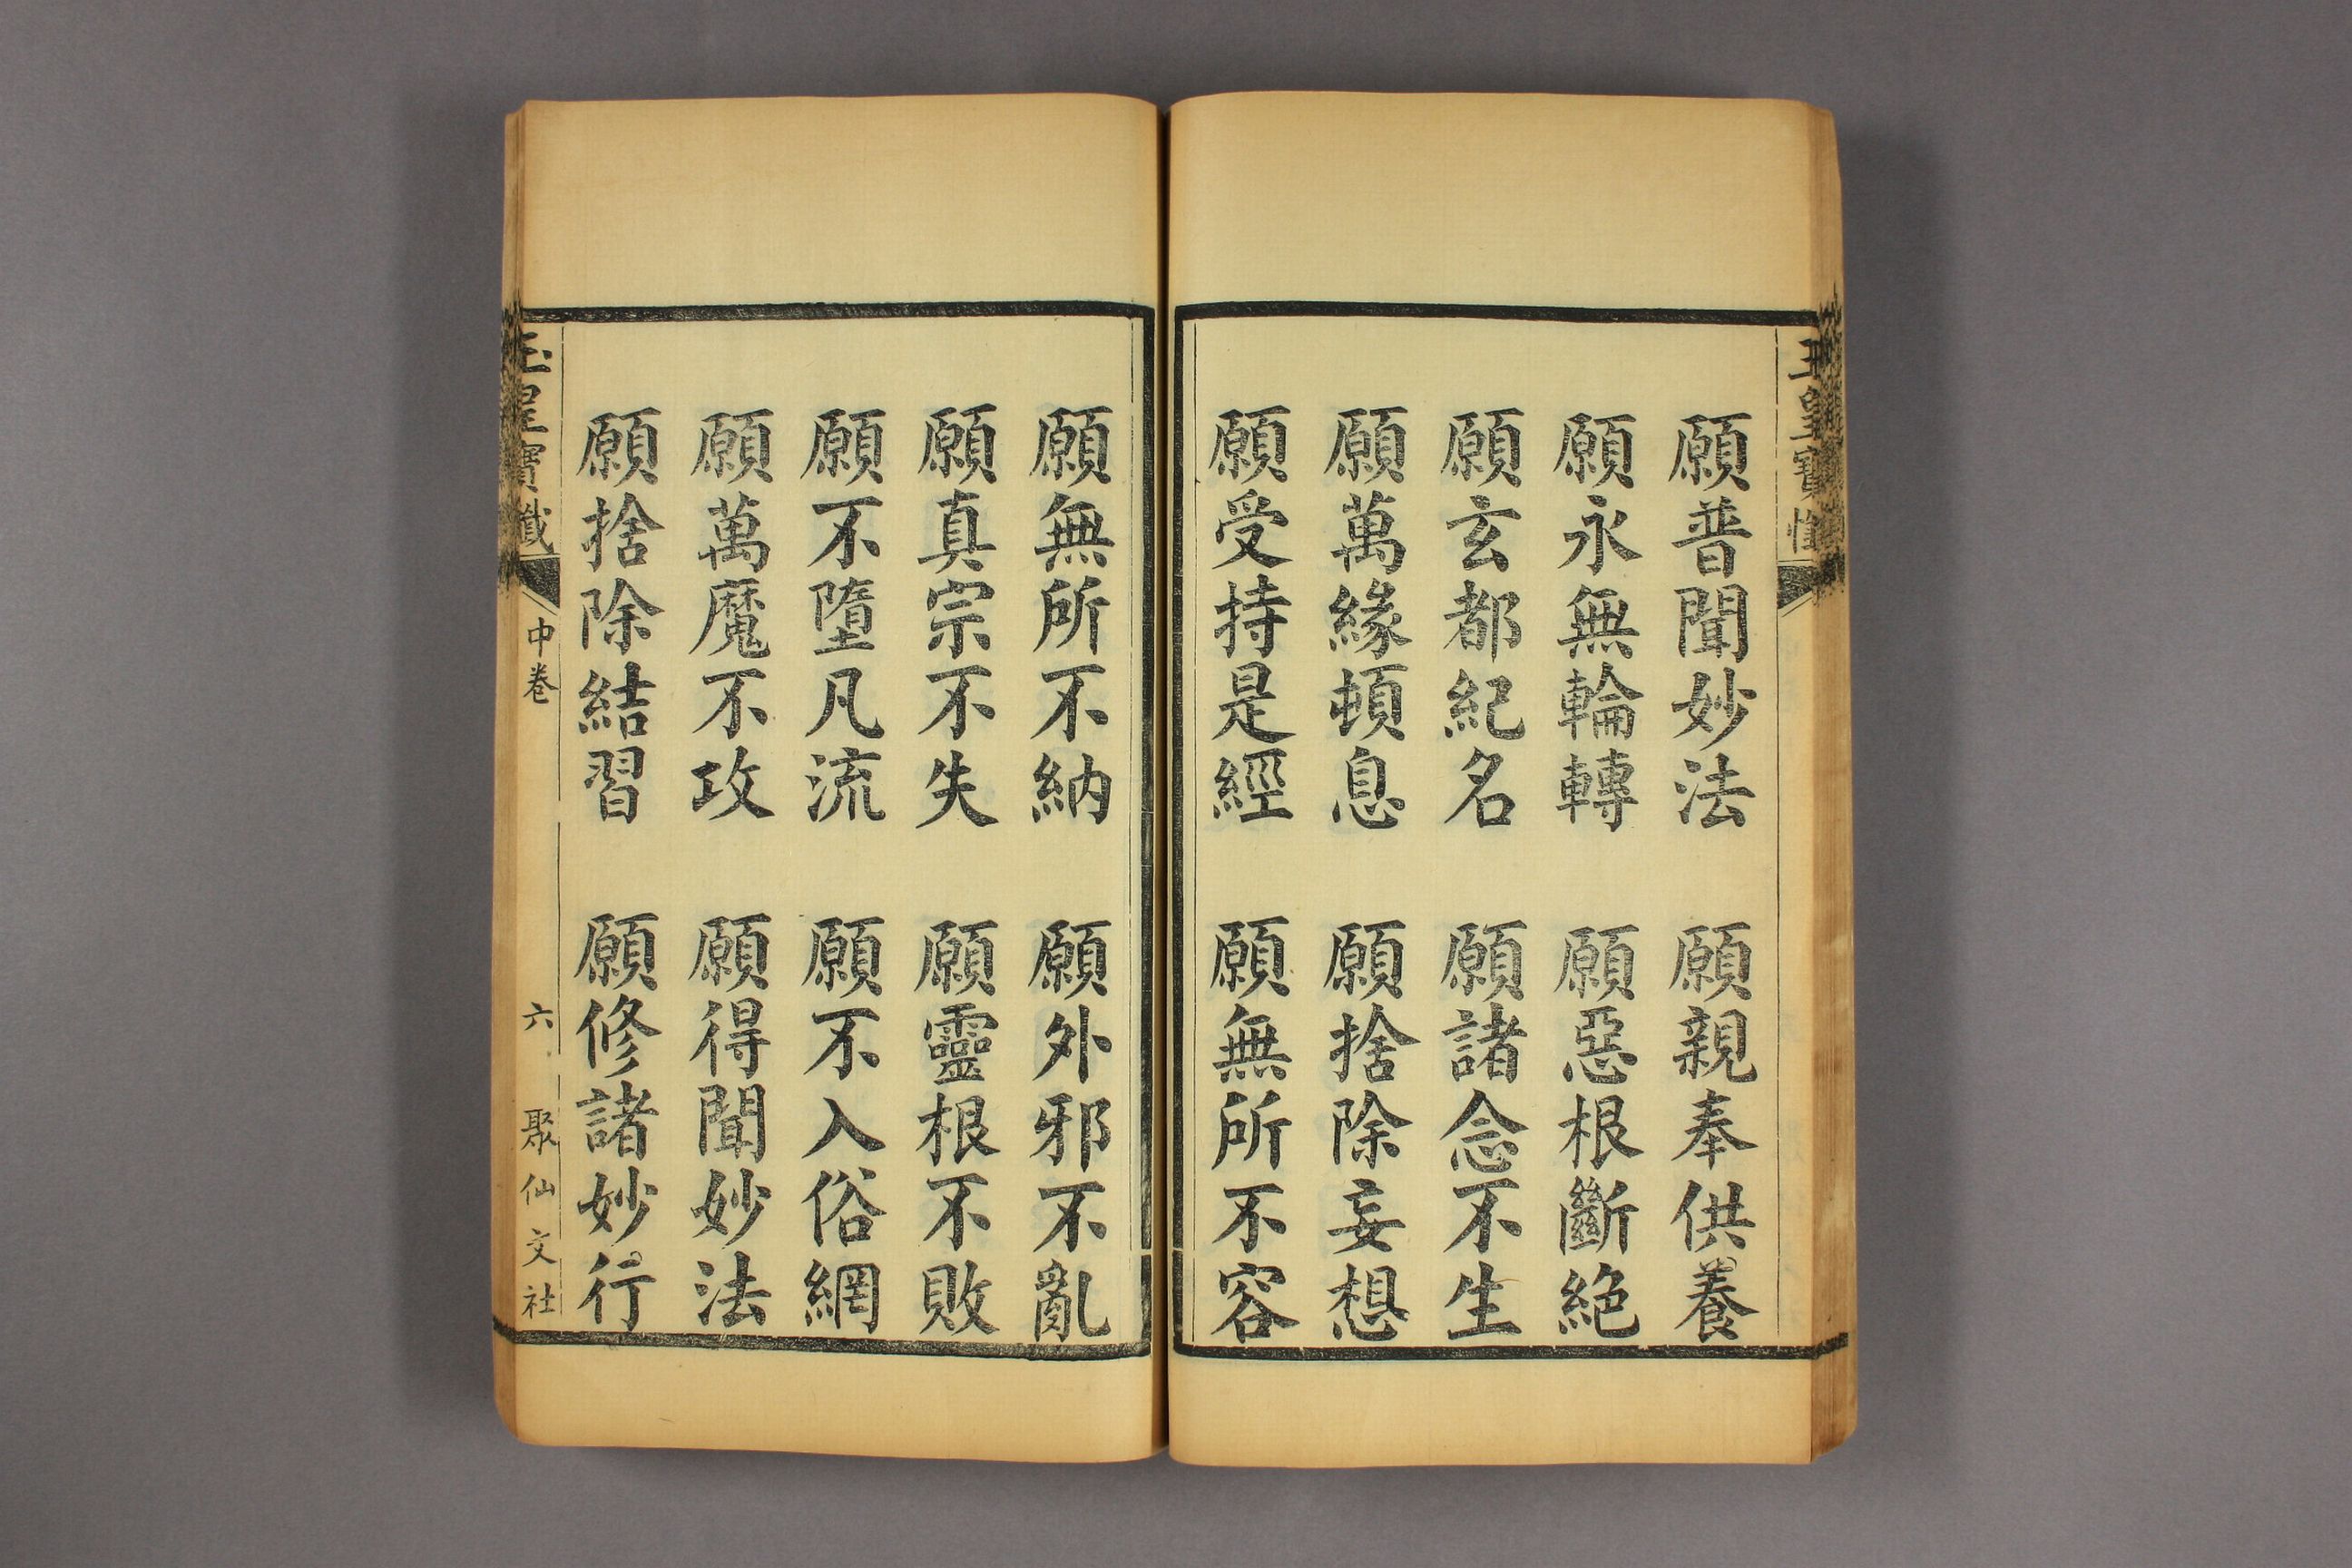 玉皇寶懺
願普聞妙法　願親奉供養
願永無輪轉　願惡根斷絕
願玄都紀名　願諸念不生
願萬緣頓息　願捨除妄想
願受持是經　願無所不容
願無所不納　願外邪不亂
願真宗不失　願靈根不敗
願不墮凡流　願不入俗網
願萬魔不攻　願得聞妙法
願捨除結習　願修諸妙行
玉皇寶懺　中卷　六　聚仙文社